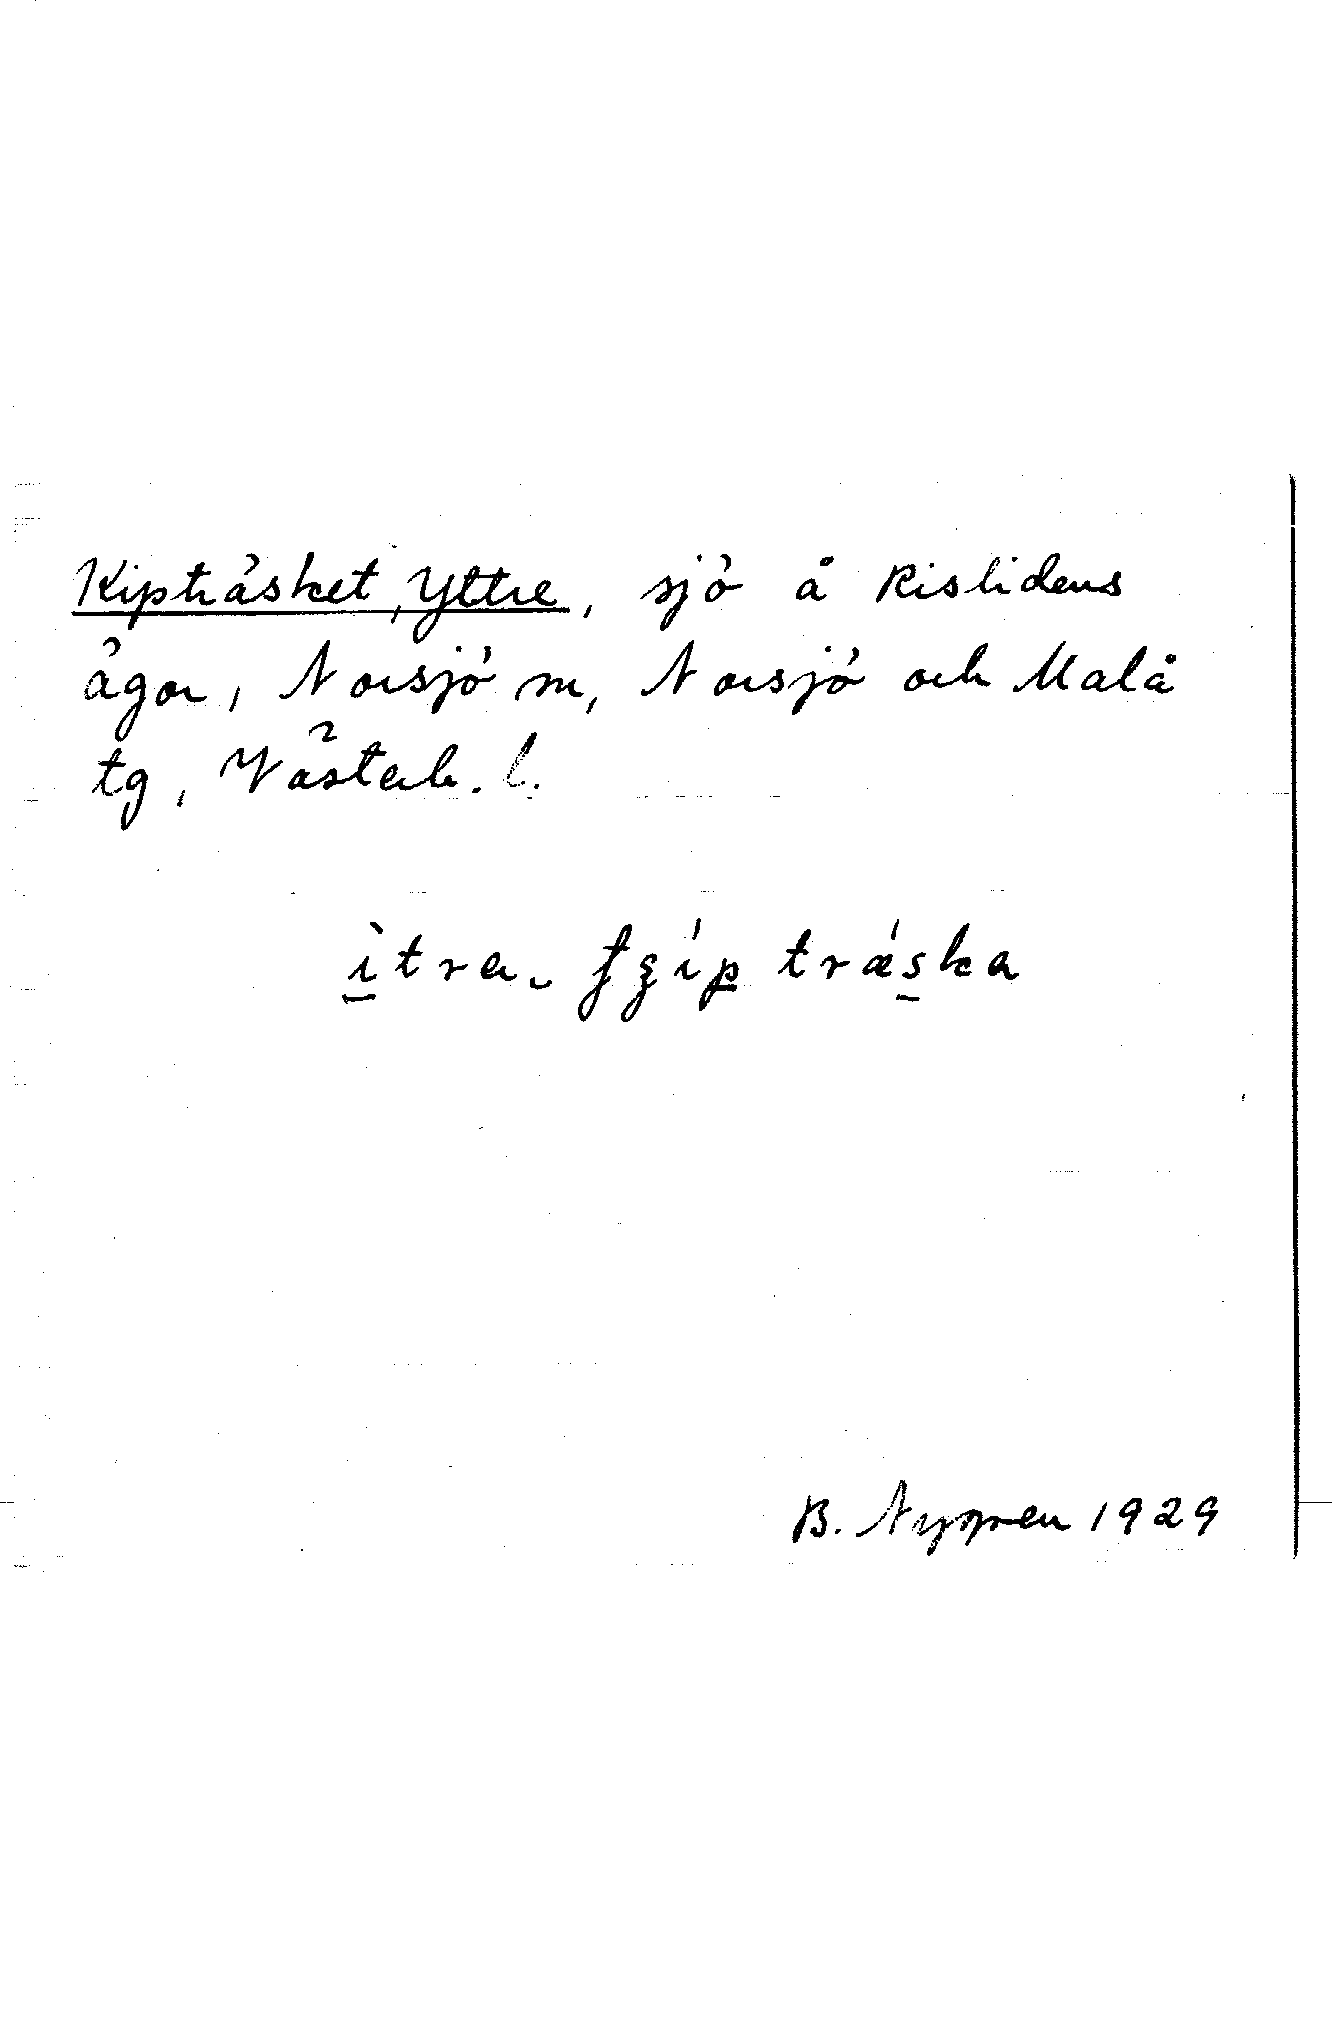 Kipträsket, Yttre, sjö å Rislidens
ägor, Norsjö sn, Norsjö och Malå
tg, Västerb. l.
ìtra- tʒíp trǽska
B. Nygren 1929